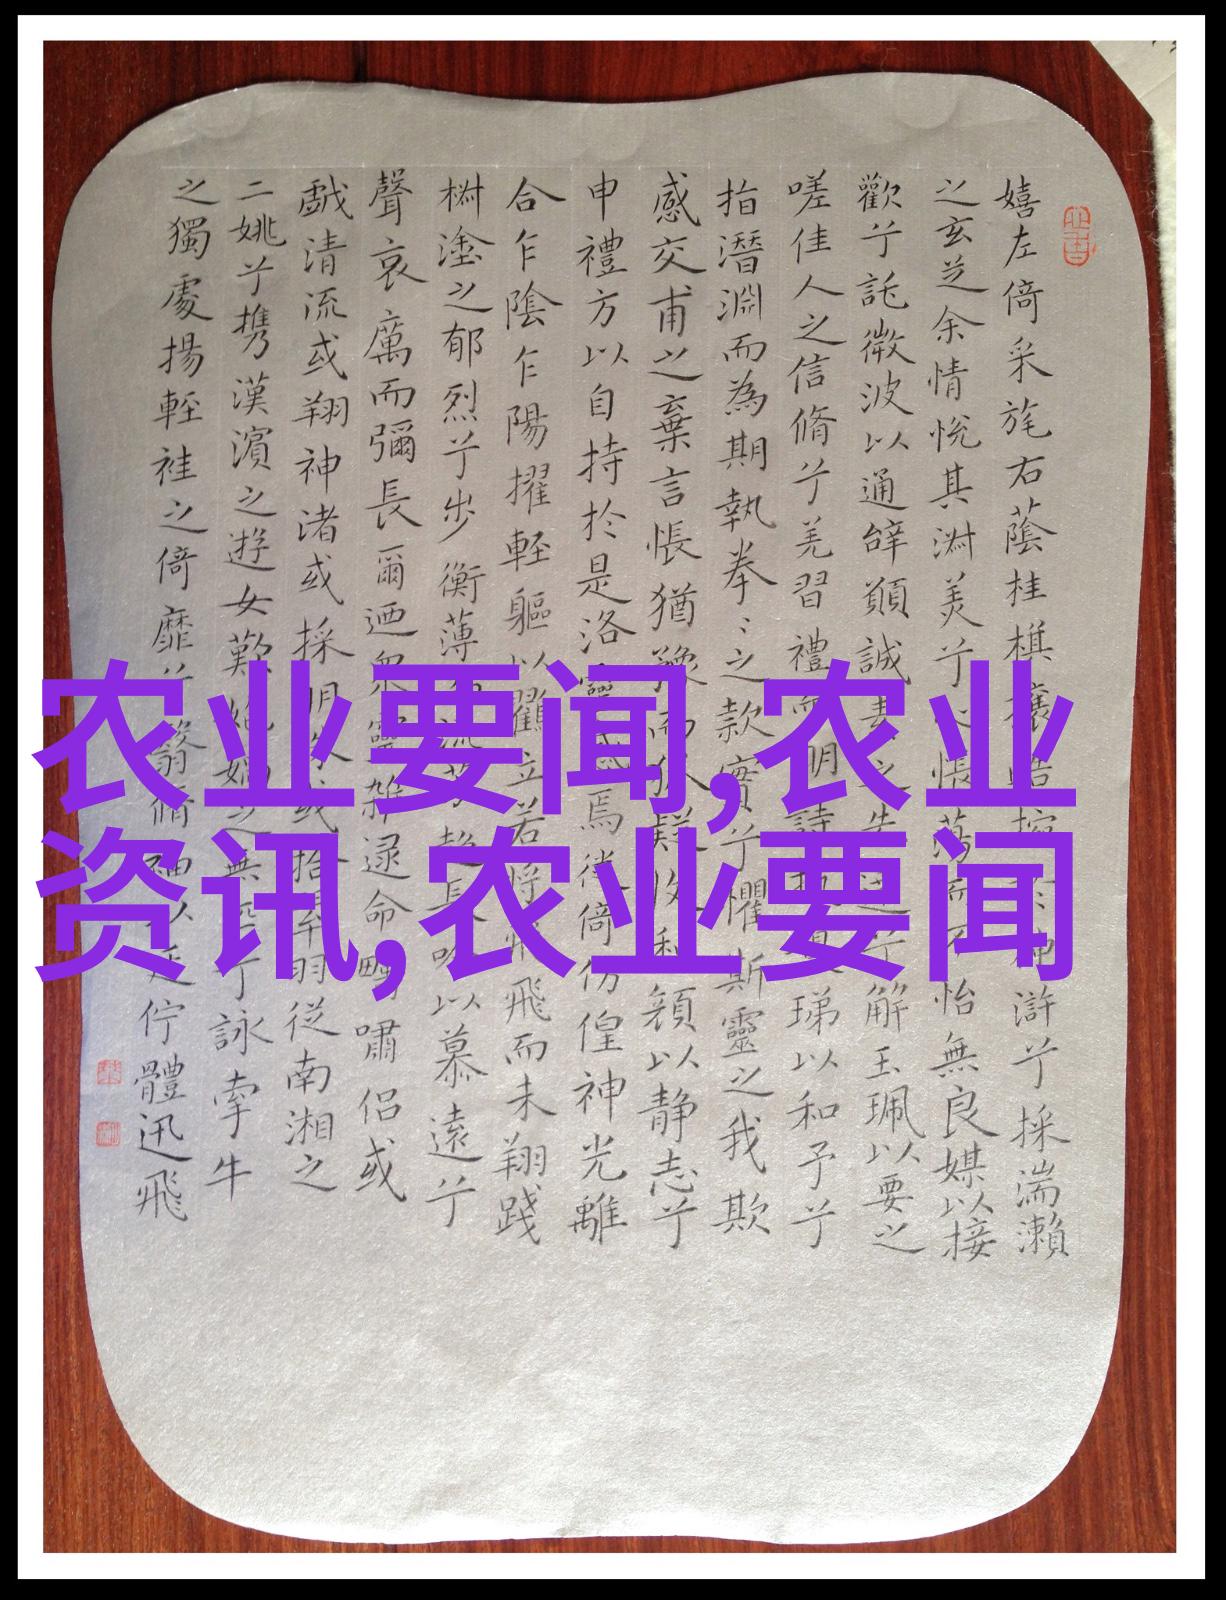 嬉左倚采旄右蔭桂棋滸兮採湍瀨
之玄芝余情悅其淑美兮悵不怡無良媒以接
歡兮託微波以通辭願誠素之先達兮解玉珮以要之
嗟佳人之信脩兮羌習禮而明詩珶以和予兮
指潛淵而為期執拳〻之款實兮懼斯靈之我欺
感交甫之棄言悵猶豫而狐疑收和顏以静志兮
申禮方以自持於是洛靈焉徙倚傍偟神光離
合乍陰乍陽擢輕軀以鶴立若將飛而未翔踐
椒塗之郁烈兮步衡薄流芳超長吟以慕遠兮
聲哀厲而彌長爾迺衆靈雜逯命疇嘯侶或
戲清流或翔神渚或採明或拾羽從南湘之
二姚兮攜漢濱之遊女歎媧之無兮詠牽牛
之獨處揚輕袿之倚靡兮翳脩袖以延佇體迅飛
农业要闻,农业
资讯,农业要闻